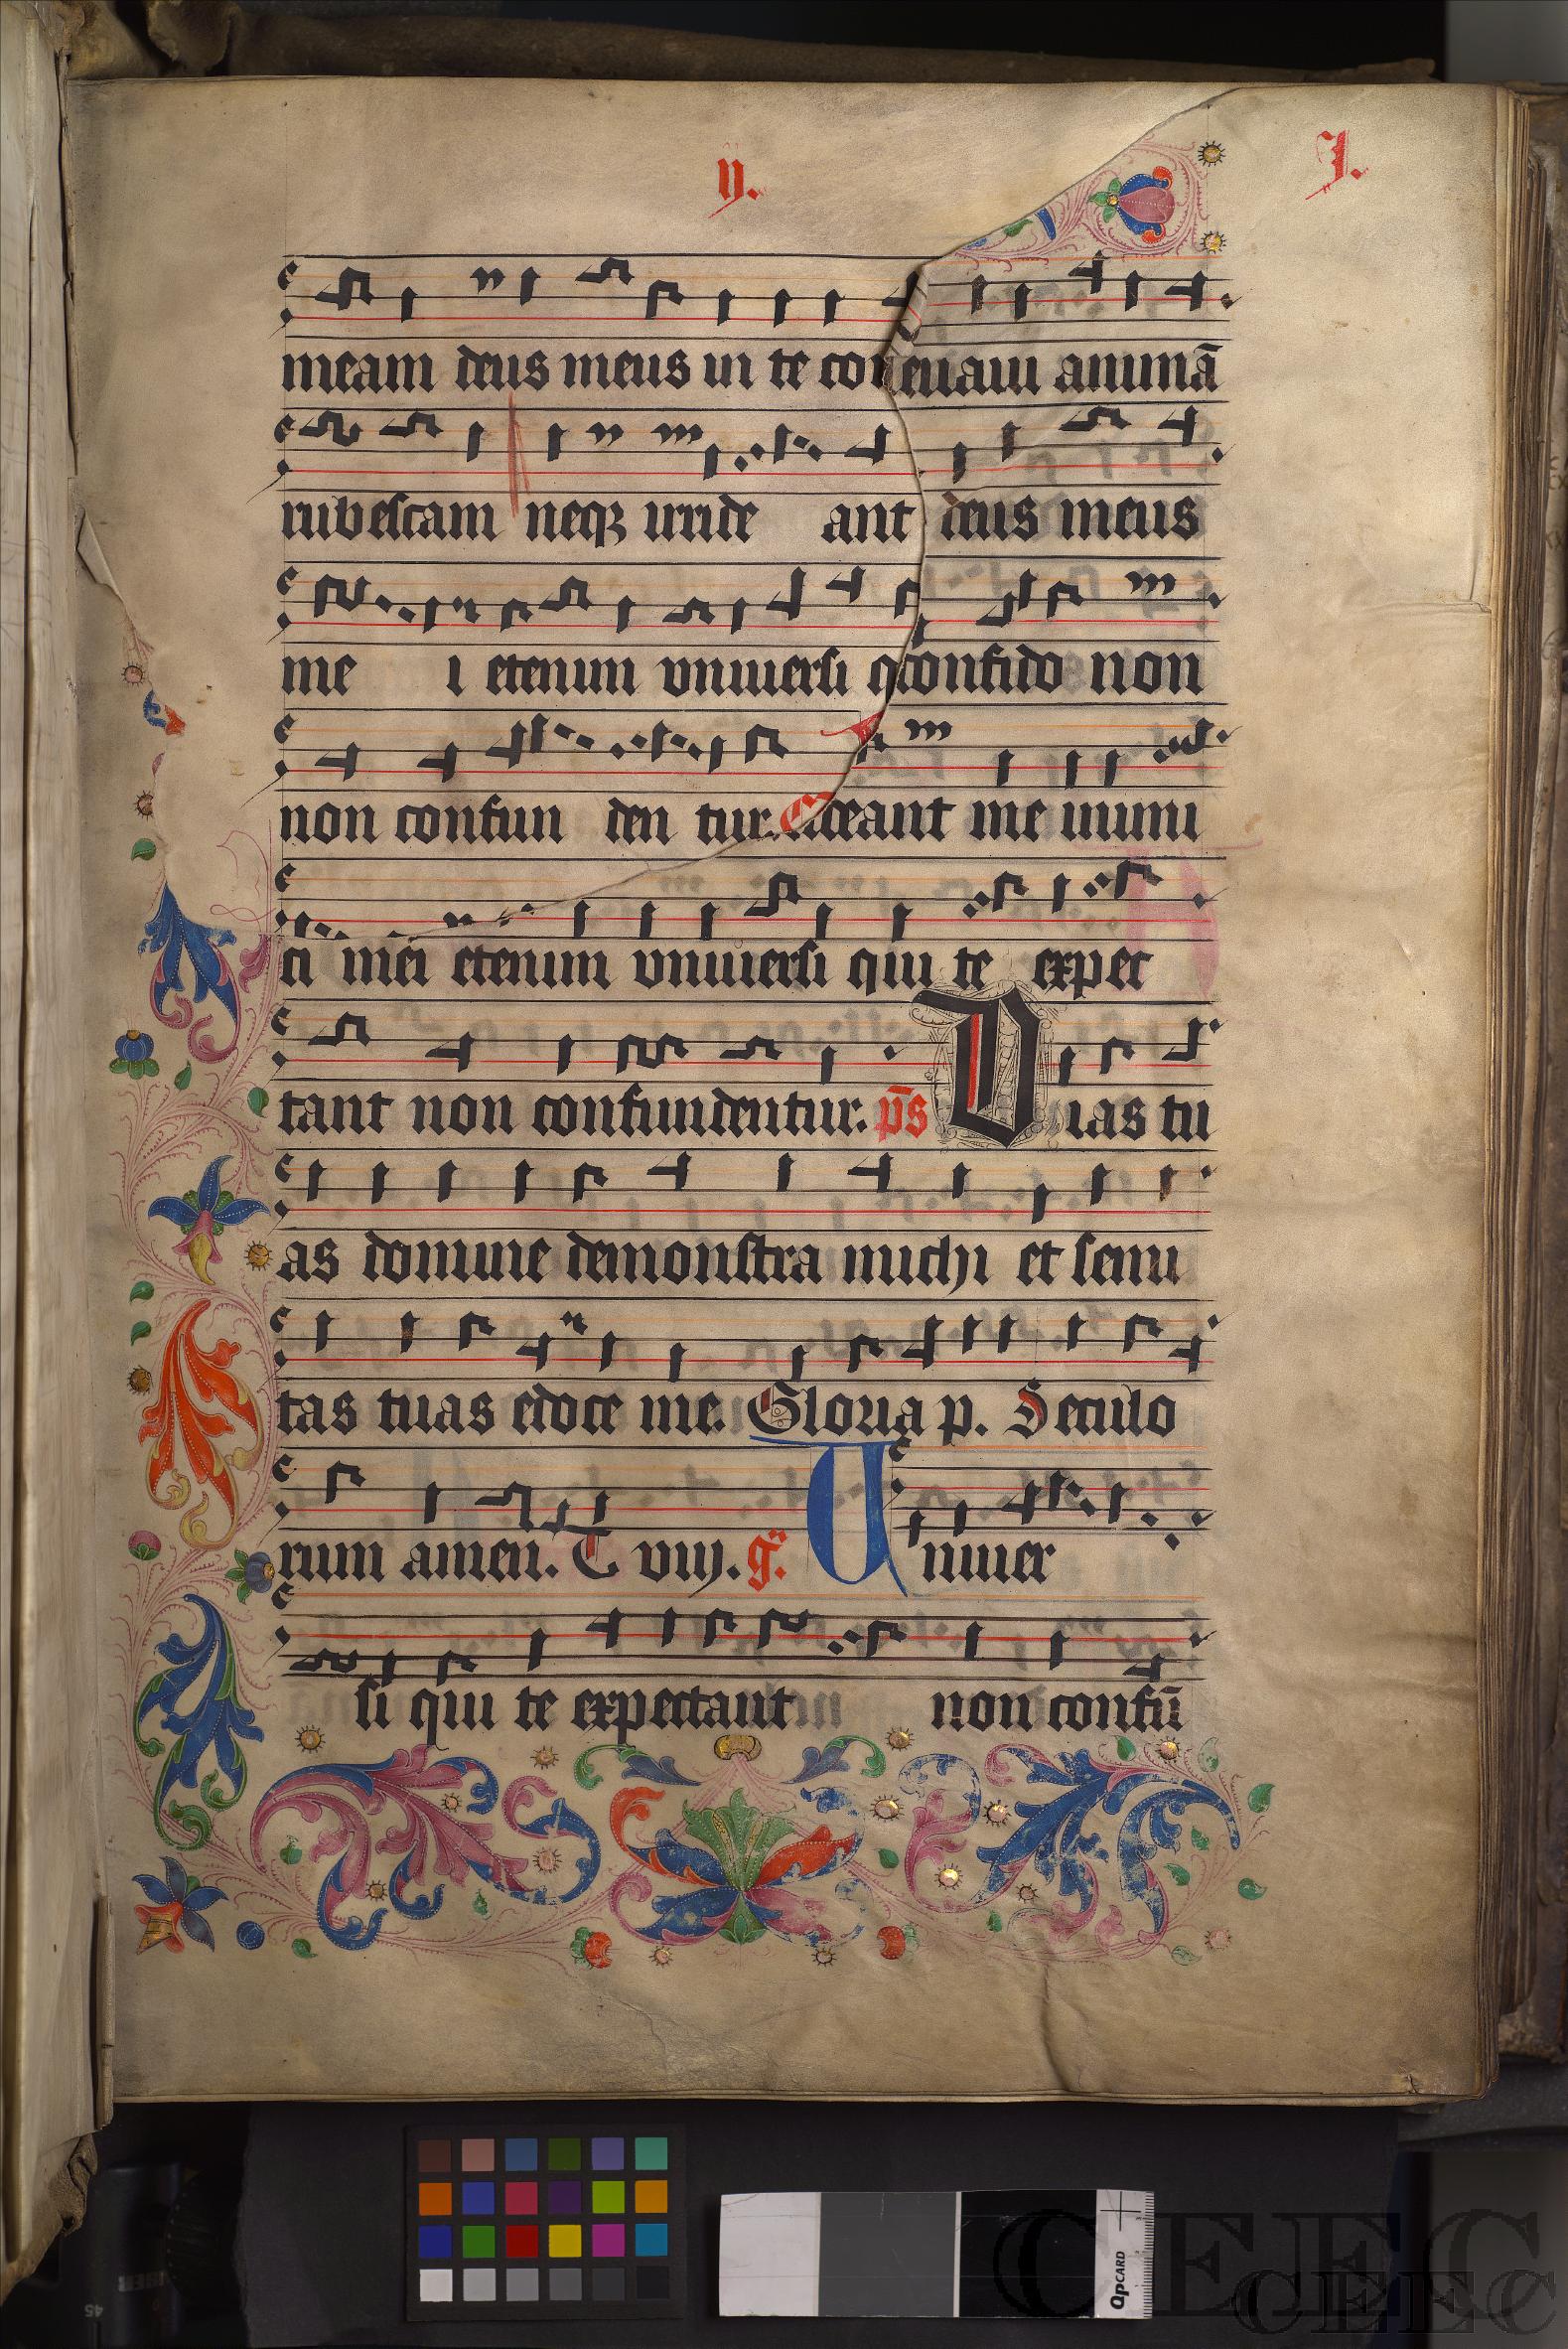 ij. I.
meam deus meus in te con euaui animā
rubescam neqꝫ irride ant deus meus
me i etenim vniuersi q confido non
non confun den tur. eant me inimi
ci mei etenim vniuersi qui te expec
tant non confundentur. p̄s Vias tu
as domine demonstra michi et semi
tas tuas edoce me. Gloria p. Seculo
rum amen. T viij. gͬ. Vniuer
si qui te expectant non confū
QPCARD
CEEC
CEEC